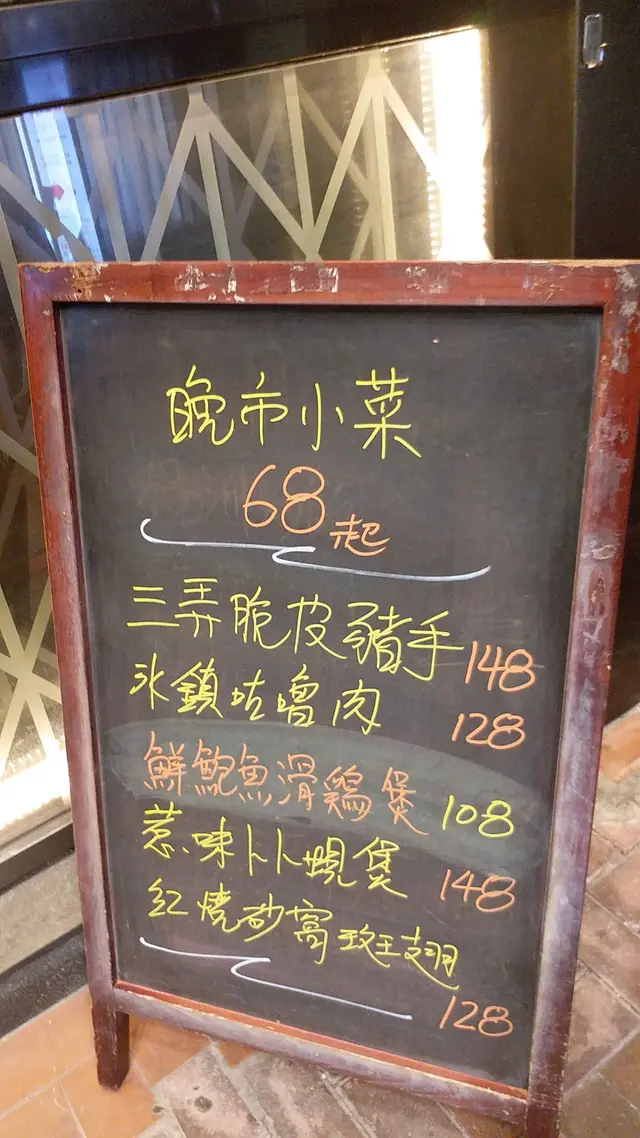 晚市小菜
68起
三弄脆皮豬手 148
冰鎮咕嚕肉 128
鮮鮑魚滑鷄煲 108
惹味卜卜蜆煲 148
紅燒砂窩斑翅
128